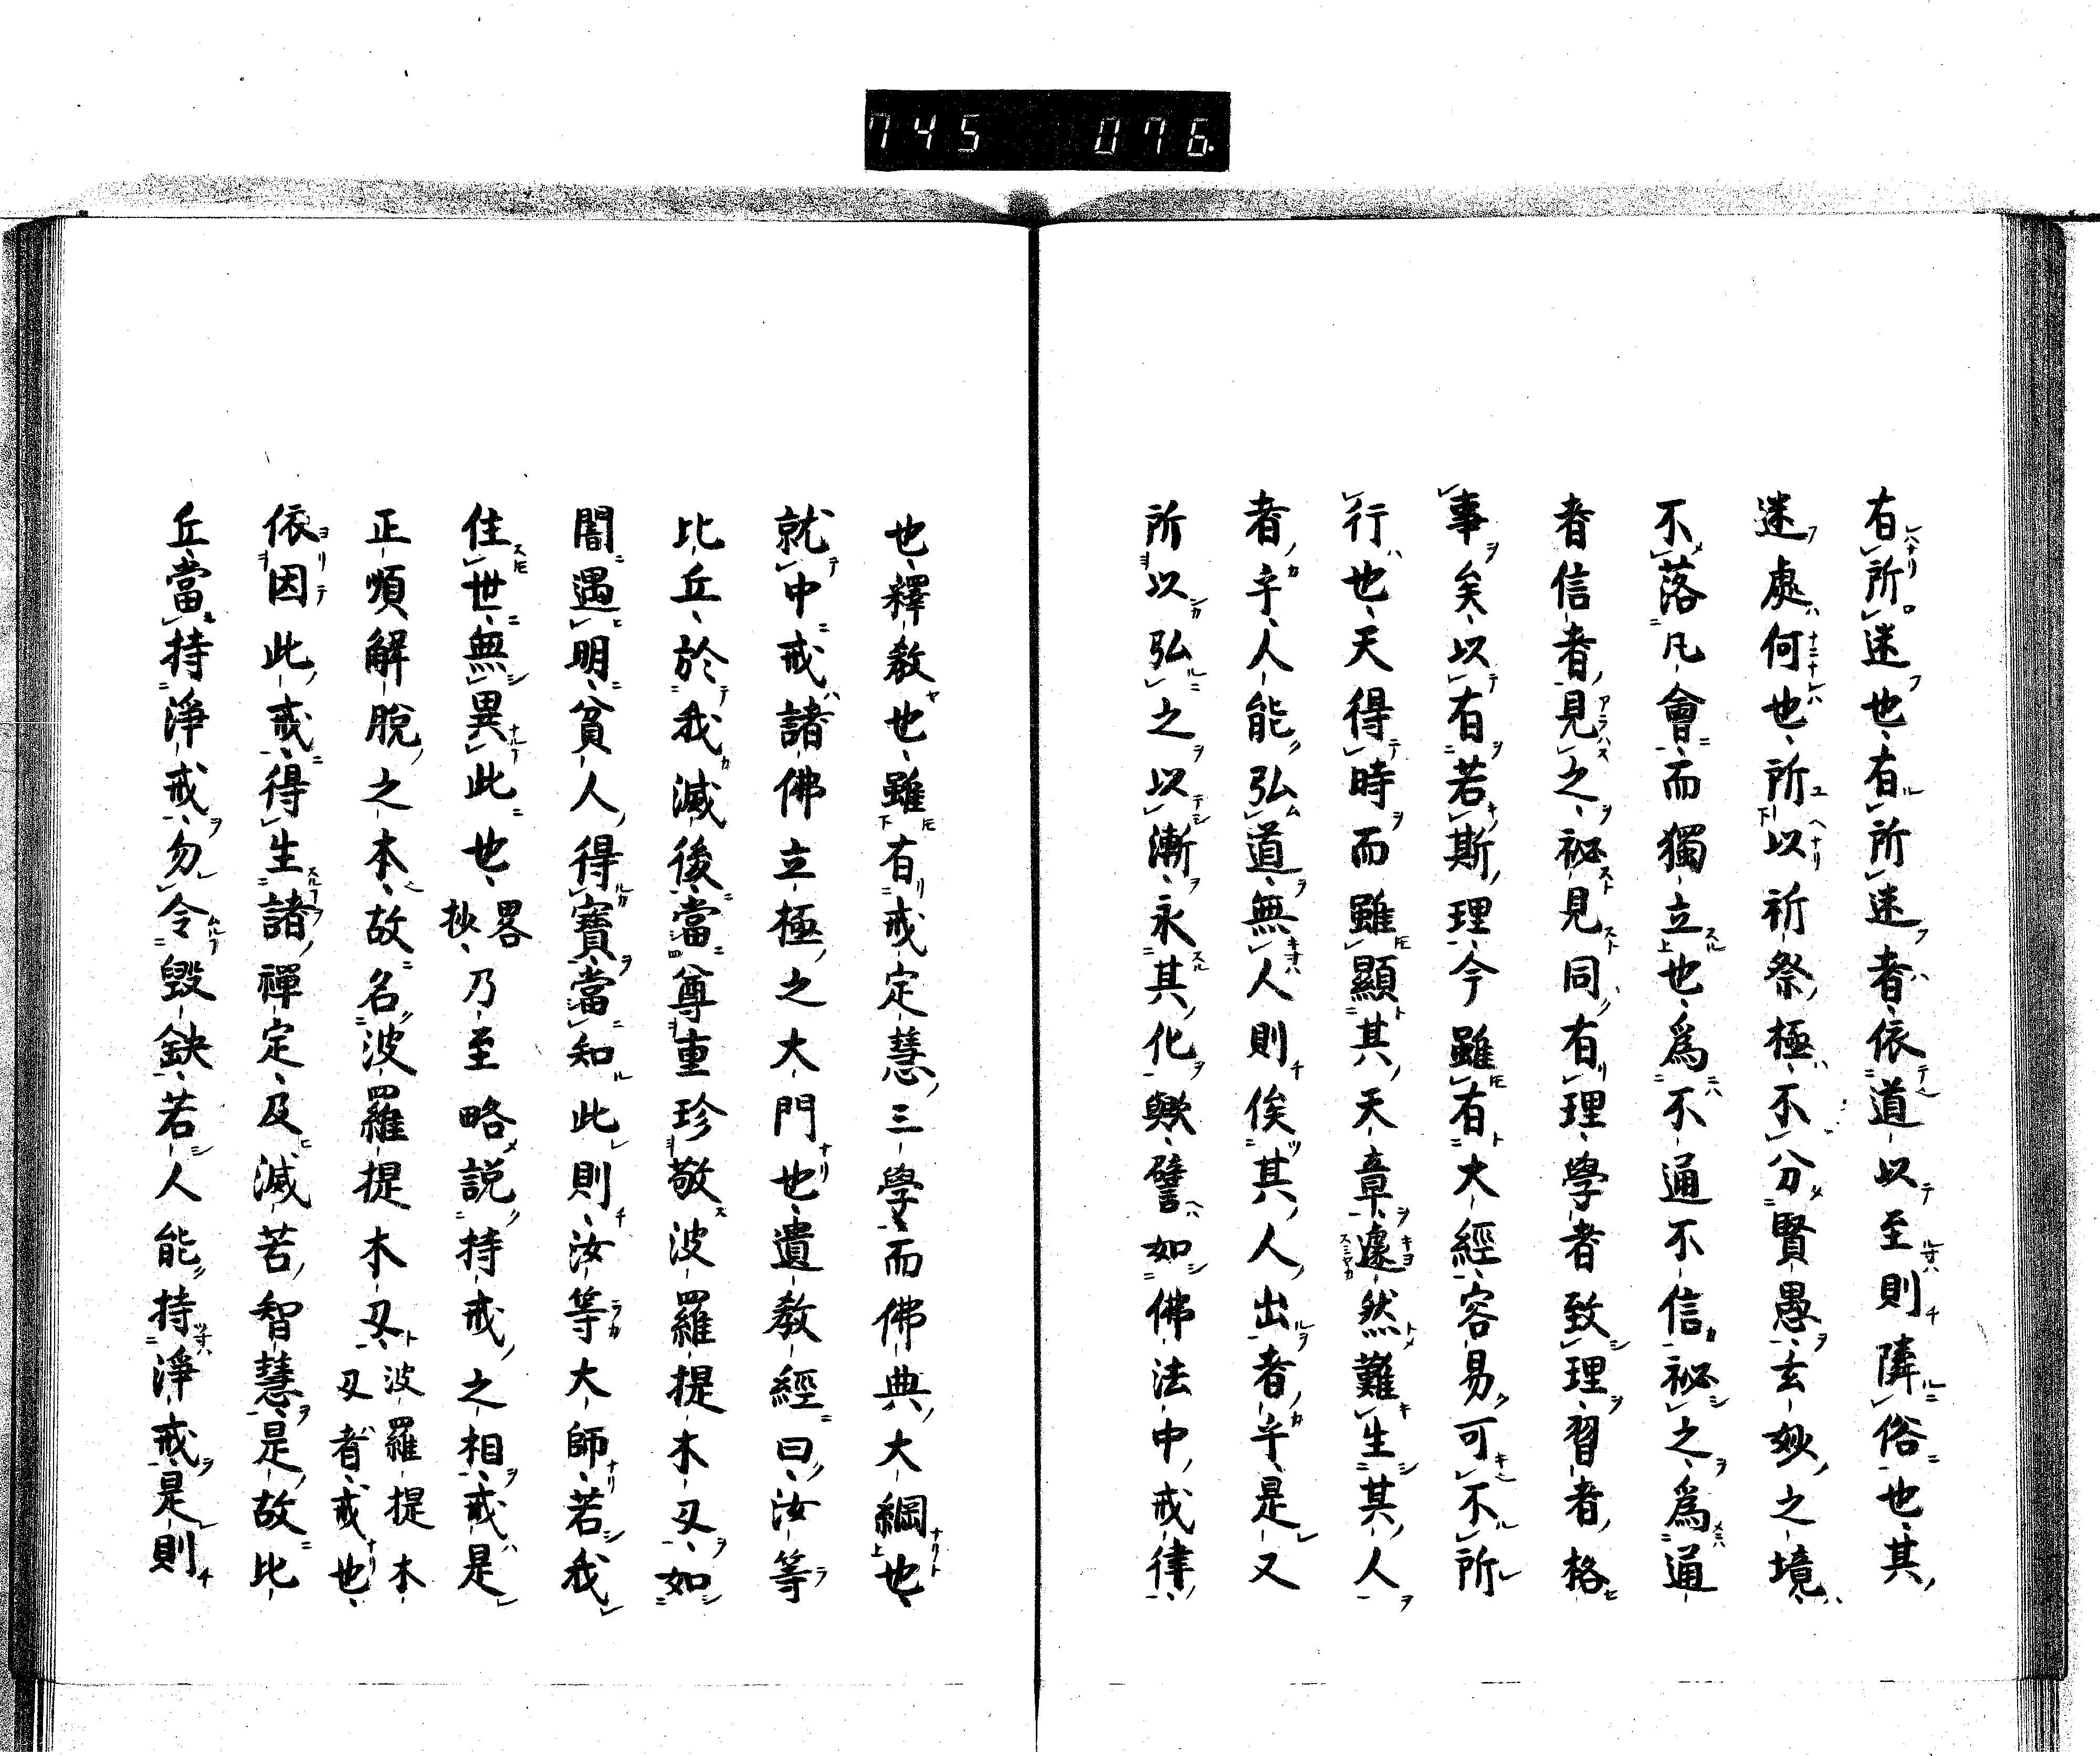 745 076
有所迷也、有所迷者、依道以至則隣俗也、其
迷處何也、所以祈祭極、不分賢愚、玄妙之境
不落凡會、而獨立也、爲不通不信祕之、爲通
者信者見之、祕見同有理、學者致理、習者格
事矣、以有若斯理、今雖有大經、容易可不所
行也、天得時而雖顯其天章、遽然難生其人
者乎、人能弘道、無人則俟其人出者乎、是又
所以弘之以漸、永其化歟、譬如佛法中戒律
也、釋教也、雖有戒定慧三學、而佛典大綱也、
就中戒、諸佛立極之大門也、遺教經曰、汝等
比丘、於我滅後、當尊重珍敬波羅提木叉、如
闇遇明、貧人得寶、當知此則汝等大師、若我
住世、無異此也、畧抄、乃至略說持戒之相、戒是
正順解脫之本、故名波羅提木叉、波羅提木叉者、戒也、
依因此戒、得生諸禪定、及滅苦智慧、是故比
丘、當持淨戒、勿令毀缺、若人能持淨戒、是則